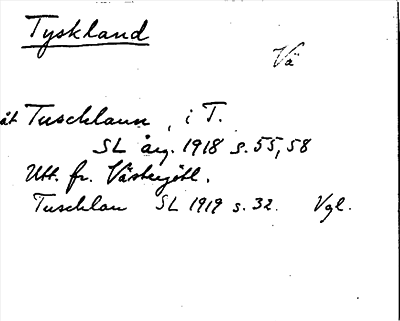 Tyskland
Vä
åt Tuschlann, i T.
SL årg. 1918 s. 55, 58
Utt. fr. Västergötl.
Tuschlan SL 1919 s. 32. Vgl.